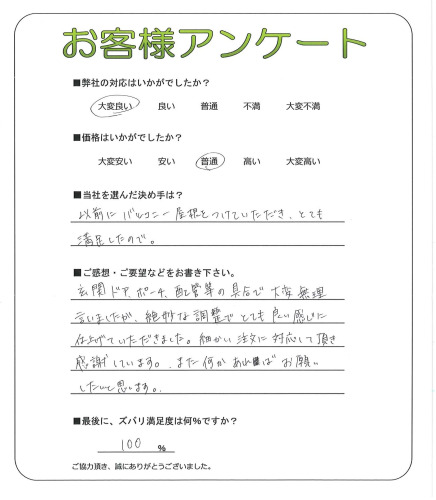 お客様アンケート
■弊社の対応はいかがでしたか？
大変良い 良い 普通 不満 大変不満
■価格はいかがでしたか？
大変安い 安い 普通 高い 大変高い
■当社を選んだ決め手は？
以前に バルコニー屋根をつけていただき、とても
満足したので。
■ご感想・ご要望などをお書き下さい。
玄関ドア、ポーチ、配管等の具合で 大変無理
言いましたが、絶妙な調整で とても良い感じに
仕上げていただきました。細かい注文に対応して頂き
感謝しています。また何かあればお願い
したいと思います。
■最後に、ズバリ満足度は何％ですか？
100 %
ご協力頂き、誠にありがとうございました。